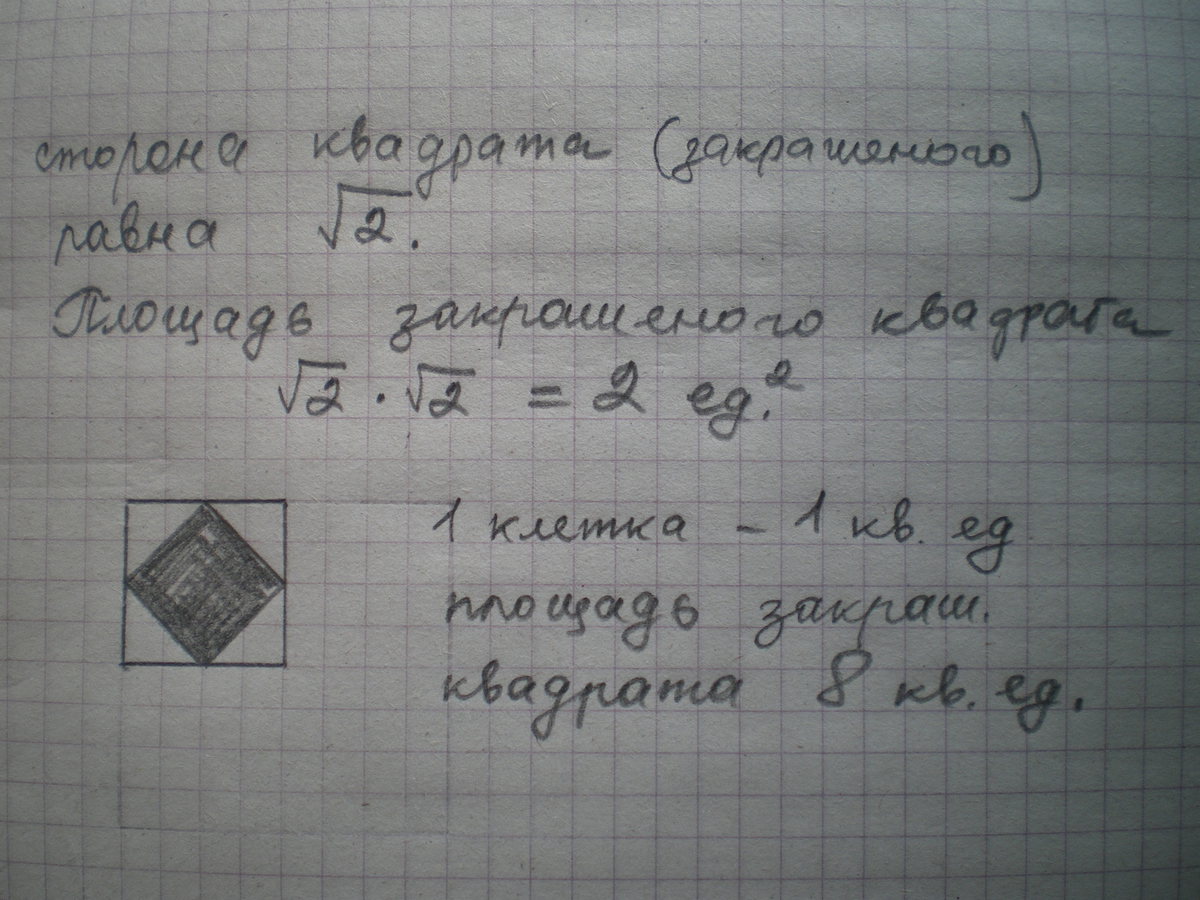 сторона квадрата (закрашеного)
равна √2.
Площадь закрашеного квадрата
√2 · √2 = 2 ед.²
1 клетка – 1 кв. ед
площадь закраш.
квадрата 8 кв. ед.